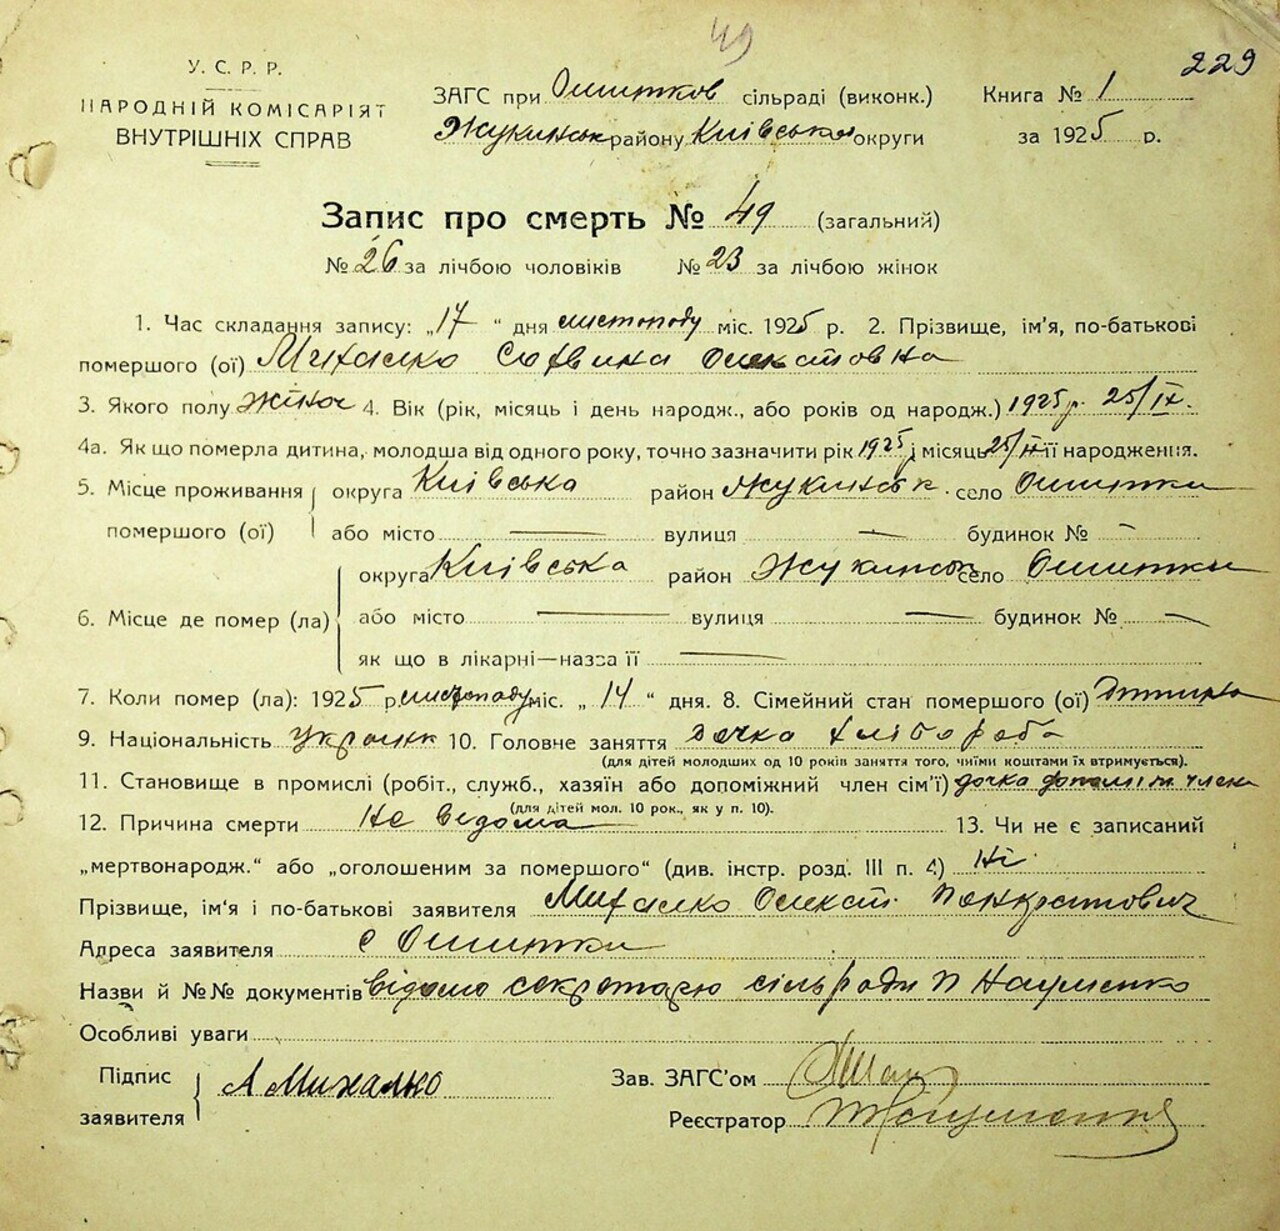 49
229
У. С. Р. Р.
НАРОДНІЙ КОМІСАРІЯТ
ВНУТРІШНІХ СПРАВ
ЗАГС при Ошитков сільраді (виконк.)
Жукинськ району Київської округи
Книга № 1
за 1925 р.
Запис про смерть № 49 (загальний)
№ 26 за лічбою чоловіків № 23 за лічбою жінок
1. Час складання запису: „17 “ дня листопаду міс. 1925 р. 2. Прізвище, ім'я, по-батькові
помершого (ої) Михалко
3. Якого полу жіноч 4. Вік (рік, місяць і день народж., або років од народж.) 1925 р. 25/IX.
4а. Як що померла дитина, молодша від одного року, точно зазначити рік 1925 р місяць 25/IX її народження.
5. Місце проживання помершого (ої) округа Київська район Жукинськ. село Ошитки
або місто — вулиця — будинок № —
6. Місце де помер (ла) округа Київська район Жукинськ село Ошитки
або місто — вулиця — будинок № —
як що в лікарні—назва її —
7. Коли помер (ла): 1925 р. листопаду міс. „ 14 “ дня. 8. Сімейний стан помершого (ої) Дитина
9. Національність українк 10. Головне заняття дочка хлібороба
(для дітей молодших од 10 років заняття того, чиїми коштами їх втримується).
11. Становище в промислі (робіт., служб., хазяїн або допоміжний член сім'ї) дочка допоміж члена
(для дітей мол. 10 рок., як у п. 10).
12. Причина смерти Не відома 13. Чи не є записаний
„мертвонародж.“ або „оголошеним за помершого“ (див. інстр. розд. III п. 4) Ні
Прізвище, ім'я і по-батькові заявителя Михалко Олексат. Панкратович
Адреса заявителя с Ошитки
Назви й №№ документів відомо секретарю сільради П Науменко
Особливі уваги
Підпис заявителя А Михалко
Зав. ЗАГС'ом
Реєстратор П Науменко